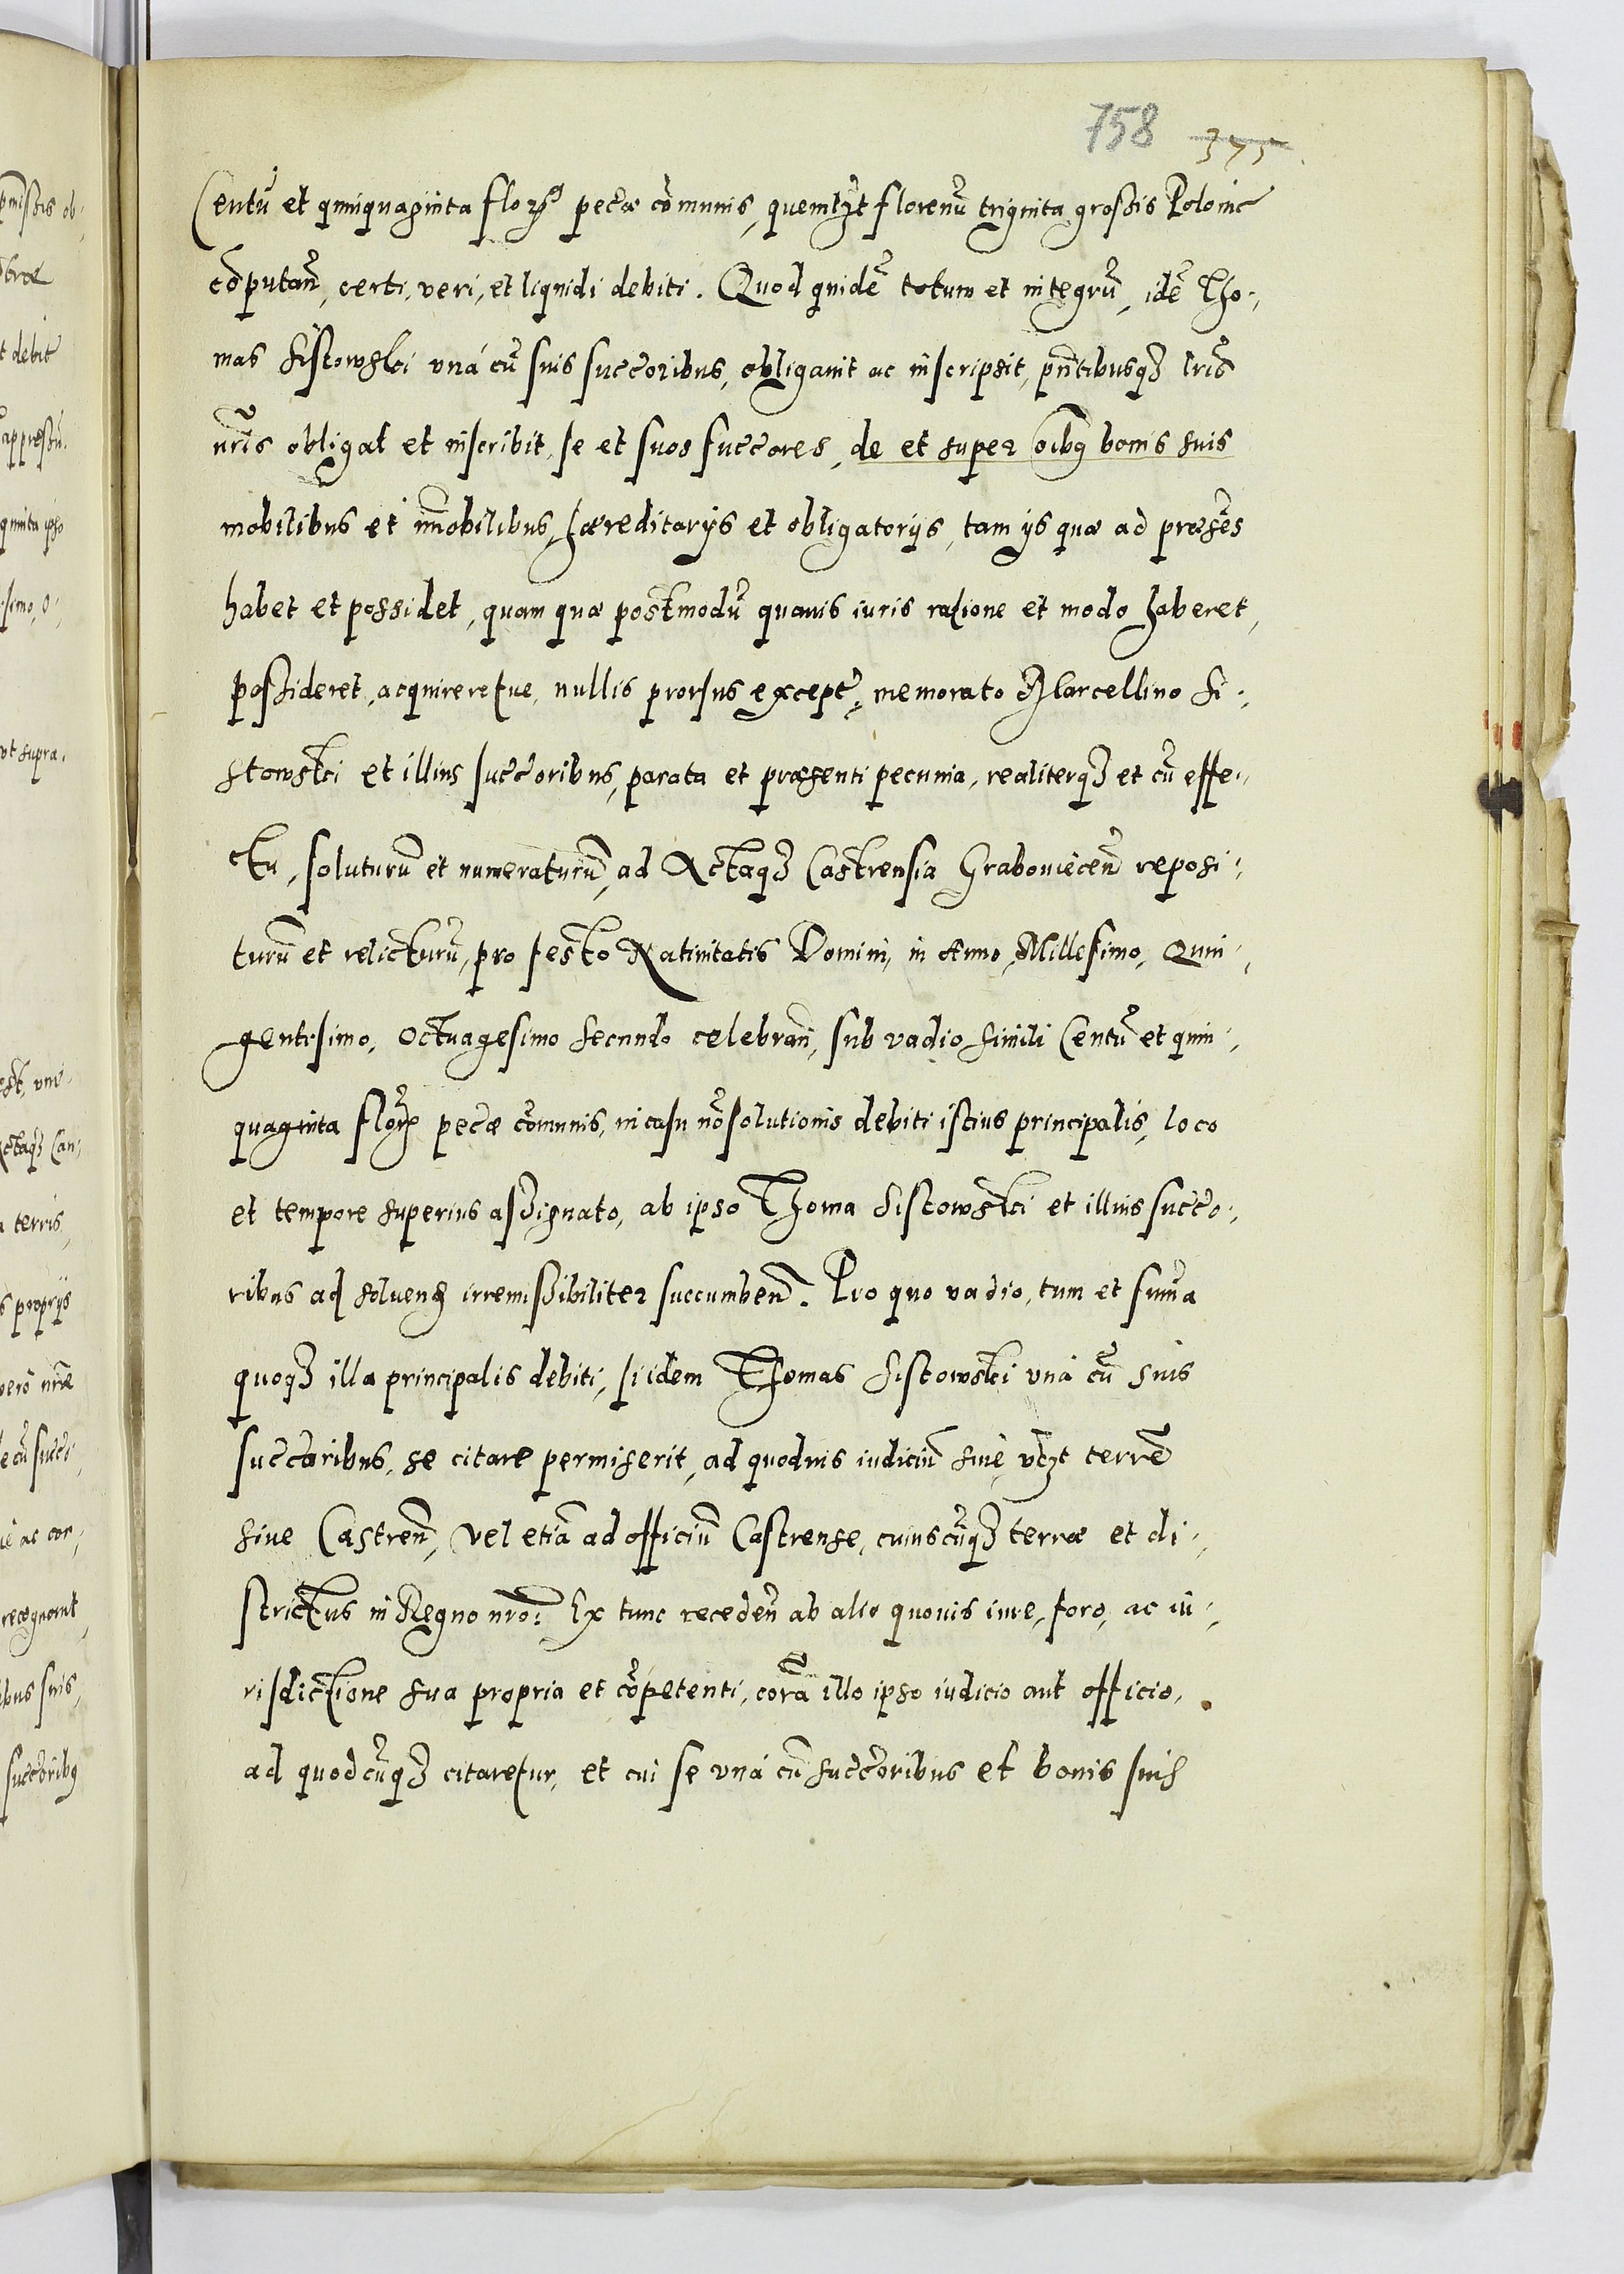 758 375
Centū et quinquaginta floꝝ pecæ cōmunis, quemlꝫt florenū triginta grossis Polonic
cōputañ, certi, veri, et liquidi debiti. Quod quidē totum et integrū, idē Tho-
mas Sistowski vná cū suis succoribus, obligauit ac inscripsit, pñtibusqꝫ lris
nris obligat et inscribit, se et suos succores, de et super oibꝰ bonis suis
mobilibus et im̄obilibus, hæreditarijs et obligatorijs, tam ijs quæ ad præsēs
habet et possidet, quam quæ postmodū quauis iuris ratione et modo haberet,
possideret, acquireretue, nullis prorsus except, memorato Marcellino Si-
stowski et illius succoribus, parata et præsenti pecunia, realiterqꝫ et cū effe-
ctu, soluturū et numeraturū, ad Actaqꝫ Castrensia Grabouieceñ reposi-
turū et relicturū, pro festo Natiuitatis Domini, in Anno Millesimo, Quin-
gentesimo, Octuagesimo secundo celebrañ, sub vadio simili Centū et quin-
quaginta floꝝ pecæ cōmunis, in casu nōsolutionis debiti istius principalis, loco
et tempore superius assignato, ab ipso Thoma Sistowski et illius succo-
ribus ad soluend irremissibiliter succumbeñ. Pro quo vadio, tum et sum̄a
quoqꝫ illa principalis debiti, si idem Thomas Sistowski vná cū suis
succoribus, se citare permiserit, ad quoduis iudiciū siue, vtꝫt terrē
siue Castreñ, vel etiā ad officiū Castrense, cuiuscūqꝫ terræ et di-
strictus in Regno nro: Ex tunc recedeñ ab alio quouis iure, foro, ac iu-
risdictione sua propria et cōpetenti, corā illo ipso iudicio aut officio,
ad quodcūqꝫ citaretur, et cui se vná cū succoribus et bonis suis